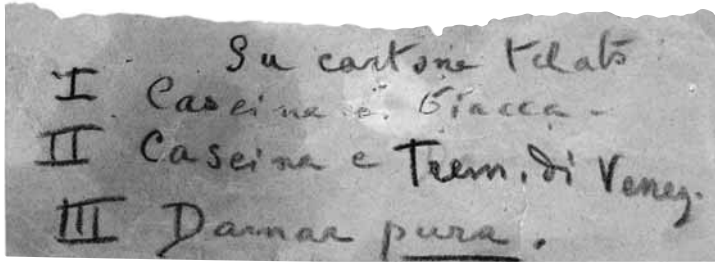 Su cartone telato
I Caseina e. Biacca -
II Caseina e Trem. di Venez.
III Damar pura.